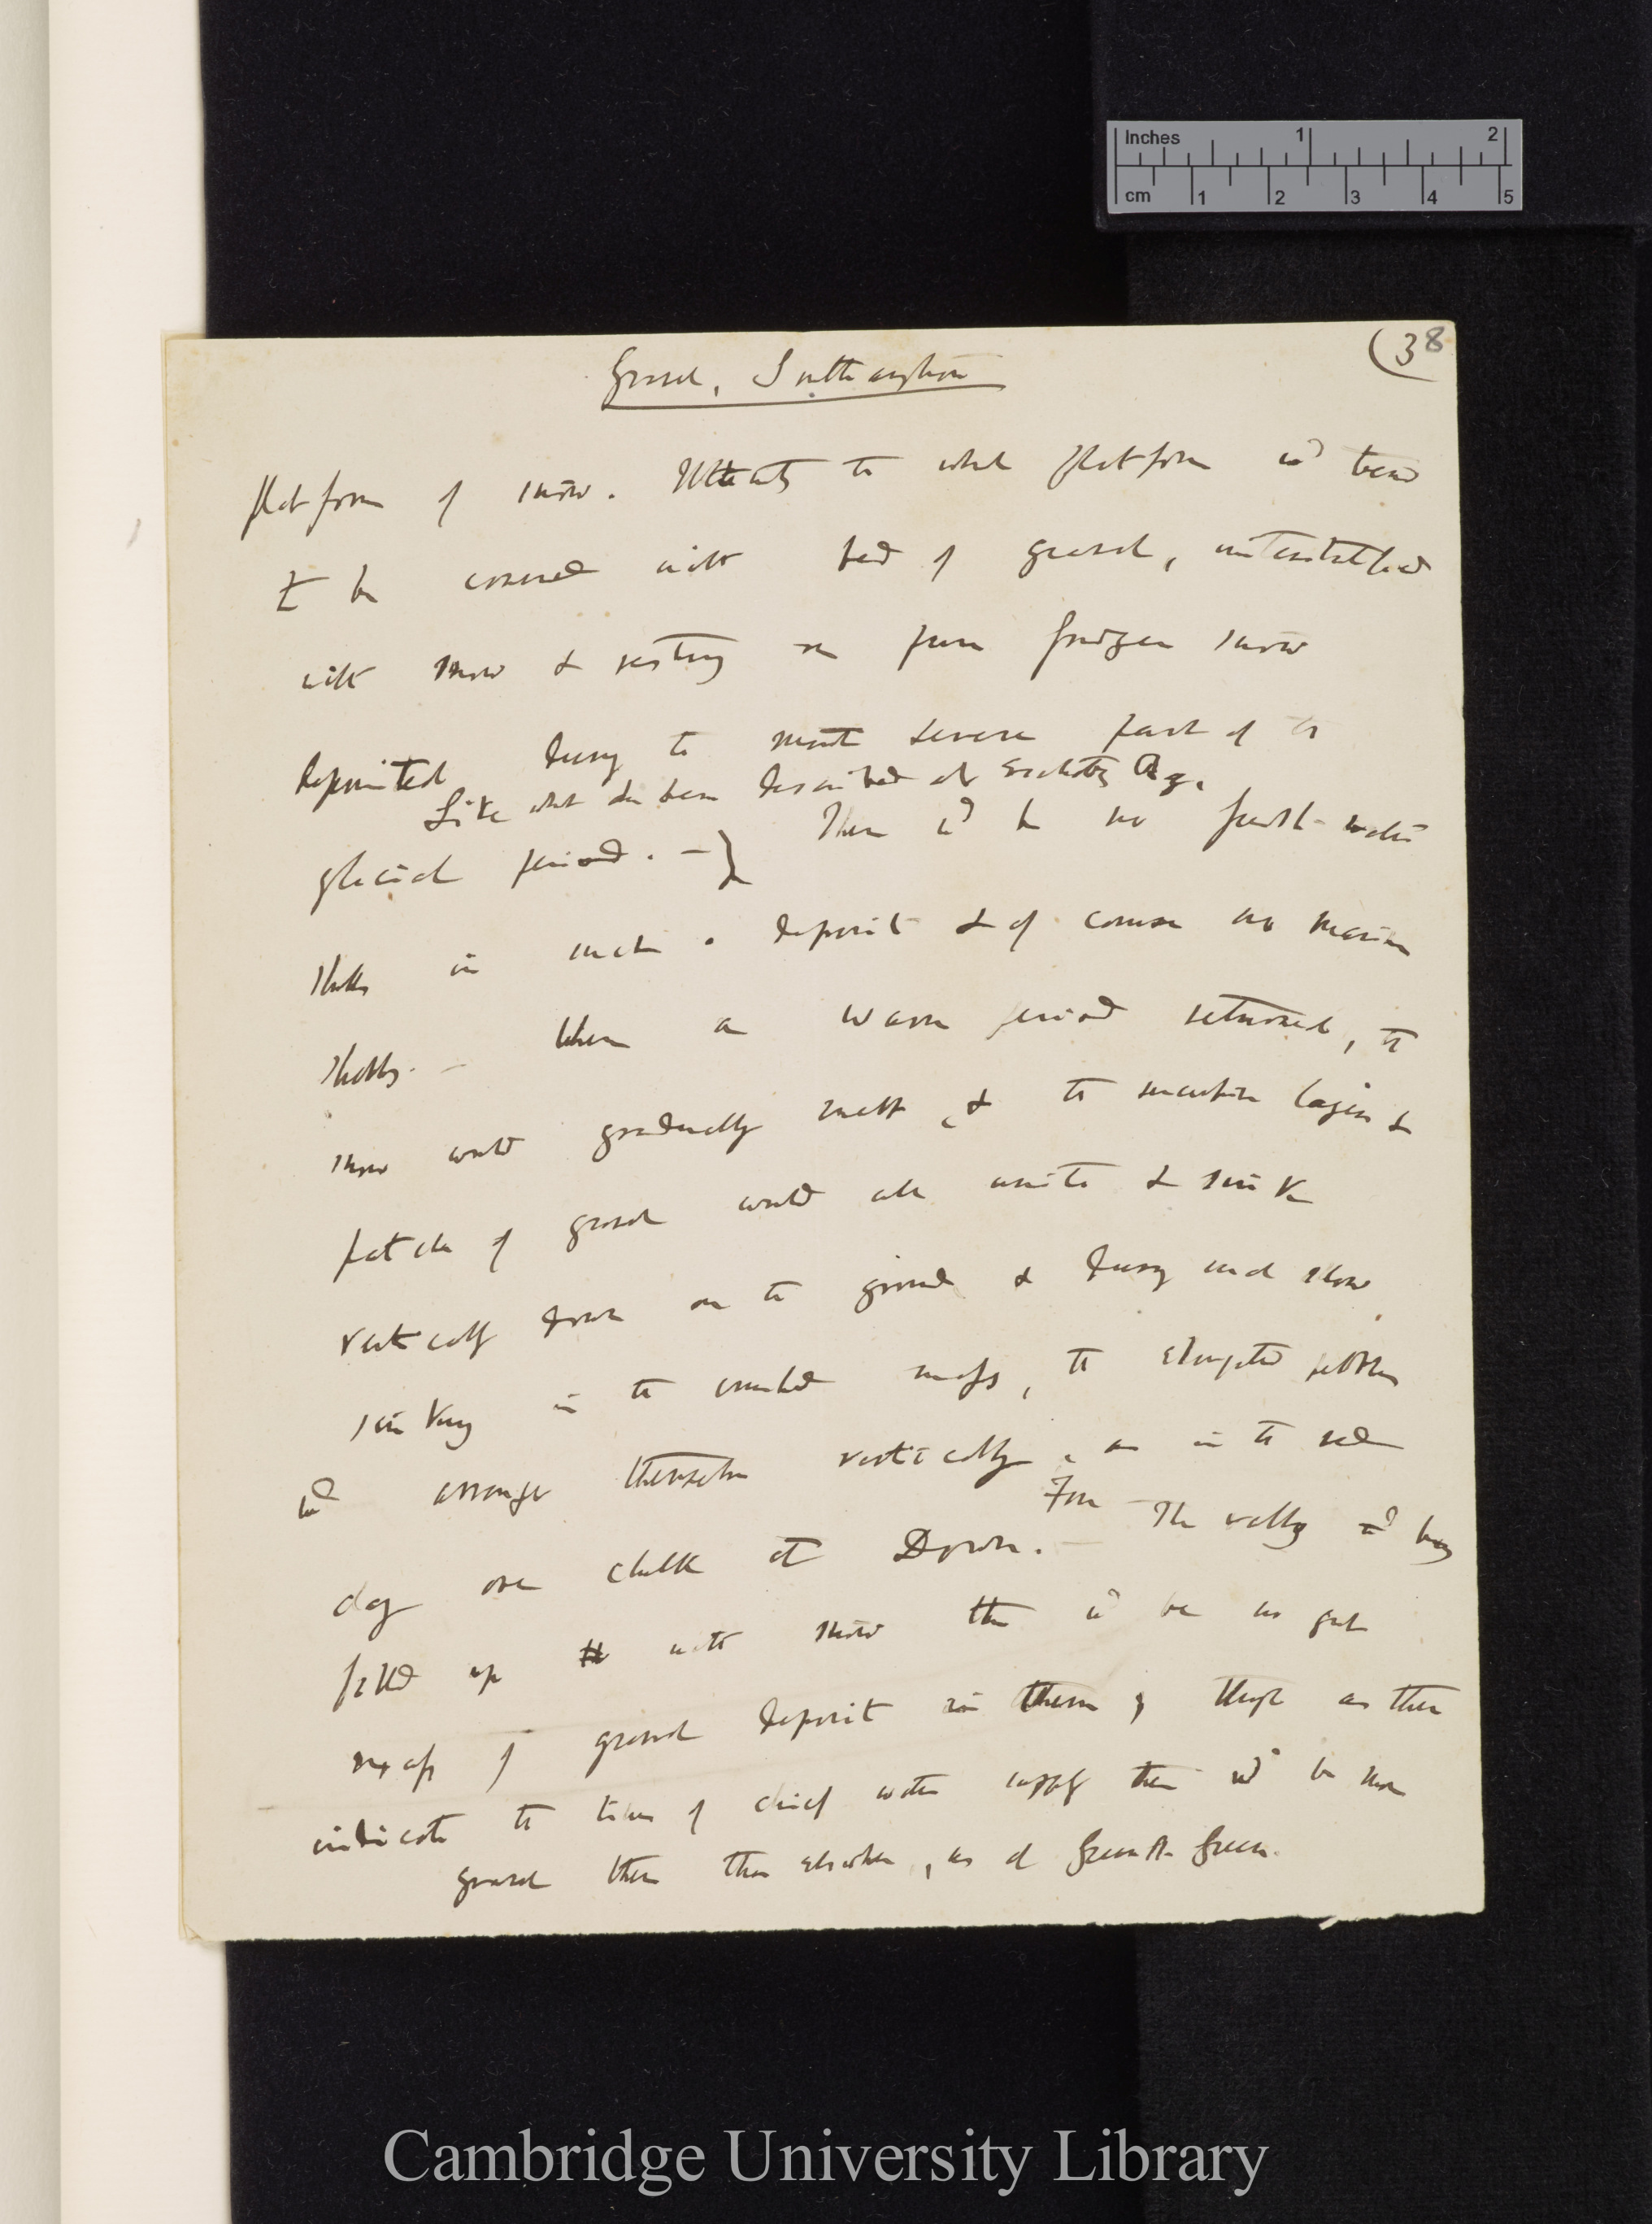 Inches 1 2
cm 1 2 3 4 5
(38
Gravel, Southampton
platform of snow. Ultimately the whole platform wd tend
to be covered with bed of gravel, interstratified
with snow & resting on pure frozen snow
deposited during the most severe part of the
Like what has been described at Eschscholtz Bay.
glacial period. —} There wd be no fresh-water
shells in such a deposit & of course no marine
shells. — When a warm period returned, the
snow would gradually melt, & the successive layers &
patches of gravel would all unite & sink
vertically down on the ground & during such slow
sinking in the crumbled mass, the elongated pebbles
wd arrange themselves vertically, as in the red
clay over chalk at Down. — The valleys wd being
filled up with snow there wd be no great
mass of gravel deposit in them; though as they
indicate the lines of chief water supply there wd be more
gravel there than elsewhere, as at Green.
Cambridge University Library